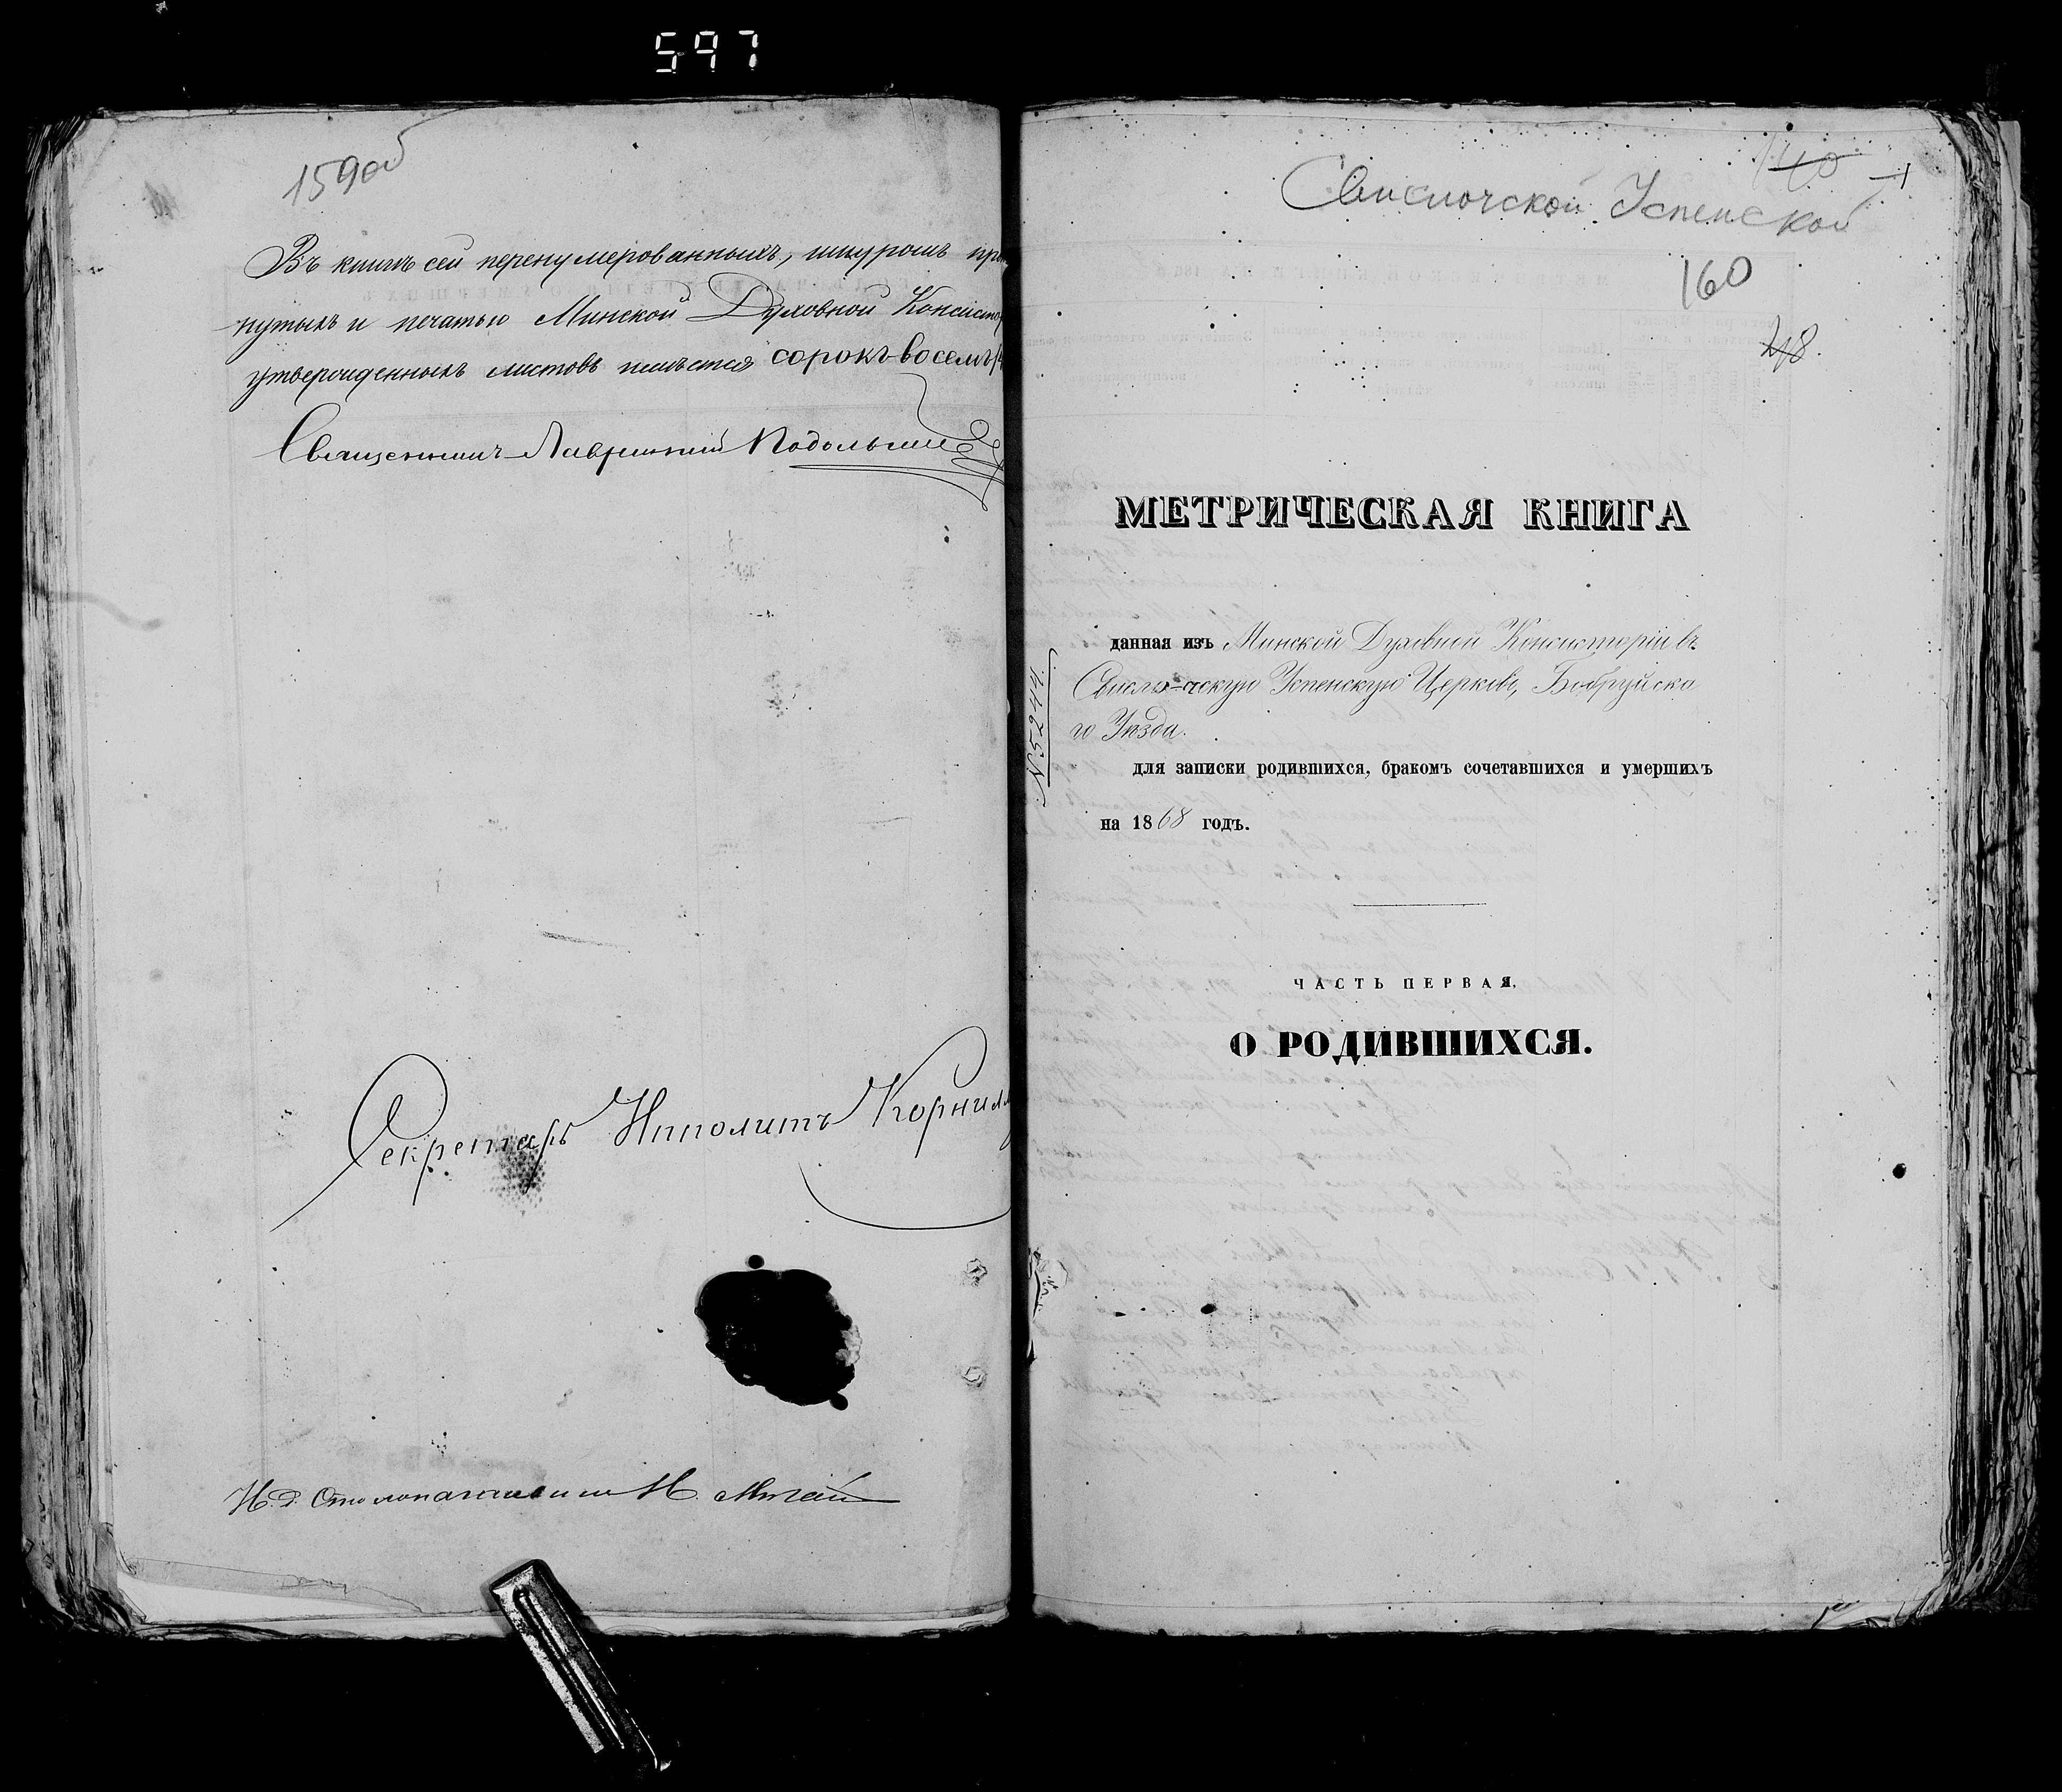 597
159об
Въ книгѣ сей перенумерованныхъ, шнуромъ про
нутыхъ и печатью Минской Духовной Консисто
утвержденныхъ листовъ имѣется сорокъ восемь
Священникъ Лаврентий
Секретарь Ипполитъ Корнил
И. д. Столоначальника Н.
140
Свислочской Успенской
160
48.
МЕТРИЧЕСКАЯ КНИГА
данная изъ Минской Духовной Консисторіи въ
Свислочскую Успенскую Церковь, Бобруйска
го Уѣзда.
№5244.
для записки родившихся, бракомъ сочетавшихся и умершихъ
на 1868 годъ.
ЧАСТЬ ПЕРВАЯ,
О РОДИВШИХСЯ.